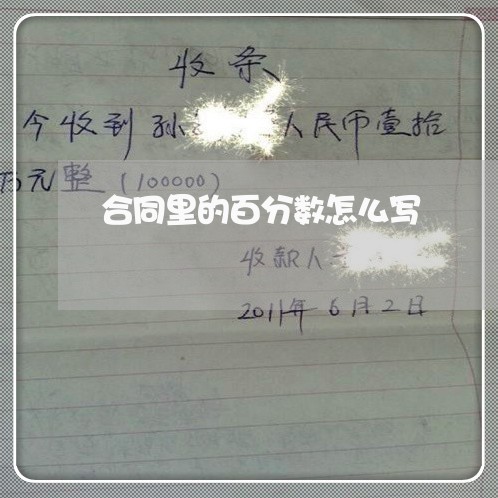 收条
今收到孙人民币壹拾
万元整(100000)
合同里的百分数怎么写
收款人
2011年6月2日